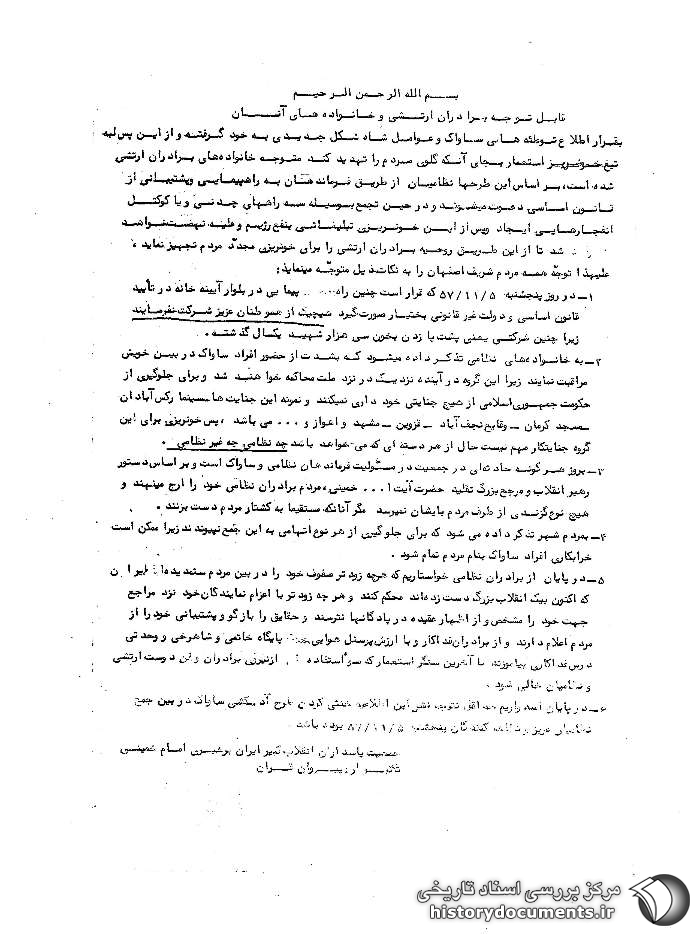 بسم الله الرحمن الرحیم
قابل توجه برادران ارتشی و خانواده های آنان
بقرار اطلاع توطئه های ساواک و عوامل شاه شکل جدیدی به خود گرفته و از این پس لبه
تیغ خونریز استعمار بجای آنکه گلوی مردم را تهدید کند متوجه خانواده‌های برادران ارتشی
شده است، بر اساس این طرحها نظامیان از طریق فرماندهان به راهپیمایی و پشتیبانی از
قانون اساسی دعوت میشوند و در حین تجمع بوسیله سه راههای چدنی و یا کوکتل
انفجارهایی ایجاد و پس از این خونریزی تبلیغاتی بنفع رژیم و علیه نهضت خواهد
شد تا از این طریق روحیه برادران ارتشی را برای خونریزی مجدد مردم تجهیز نماید ،
علیهذا توجه همه مردم شریف اصفهان را به نکات ذیل متوجه مینماید:
۱ـ در روز پنجشنبه ۵۷/۱۱/۵ که قرار است چنین پیمایی در بلوار آیینه خانه در تأیید
قانون اساسی و دولت غیر قانونی بختیار صورت گیرد هیچیک از هموطنان عزیز شرکت نفرمایند
زیرا چنین شرکتی یعنی پشت پا زدن بخون سی هزار شهید یکسال گذشته .
۲ـ به خانواده‌های نظامی تذکر داده میشود که بشدت از حضور افراد ساواک در بین خویش
مراقبت نمایند زیرا این گروه در آینده نزدیک در نزد ملت محاکمه خواهند شد و برای جلوگیری از
حکومت جمهوری اسلامی از هیچ جنایتی خود داری نمیکنند و نمونه این جنایت ها سینما رکس آبادان
ـ مسجد کرمان ـ وقایع نجف آباد ـ قزوین ـ مشهد و اهواز و ... می باشد ، پس خونریزی برای این
گروه جنایتکار مهم نیست حال از هر دسته ای که می‌خواهد باشد چه نظامی چه غیر نظامی .
۳ـ بروز هر گونه حادثه‌ای در جمعیت در مسئولیت فرماندهان نظامی و ساواک است و بر اساس دستور
رهبر انقلاب و مرجع بزرگ تقلید حضرت آیت ا... خمینی، مردم برادران نظامی خود را ارج مینهند و
هیچ نوع گزندی از طرف مردم بایشان نمیرسد مگر آنانکه مستقیما به کشتار مردم دست بزنند .
۴ـ بمردم شهر تذکر داده می شود که برای جلوگیری از هر نوع اتهامی به این جمع نپیوندند زیرا ممکن است
خرابکاری افراد ساواک بنام مردم تمام شود .
۵ـ در پایان از برادران نظامی خواستاریم که هرچه زودتر صفوف خود را در بین مردم ستمدیده ایران
که اکنون بیک انقلاب بزرگ دست زده‌اند محکم کنند و هر چه زودتر با اعزام نمایندگان خود نزد مراجع
جهت خود را مشخص و از اظهار عقیده در پادگانها نترسند و حقایق را بازگو و پشتیبانی خود را از
مردم اعلام دارند و از برادران فداکار و با ارزش پرسنل هوایی پایگاه خاتمی و شاهرخی و وحدتی
درس فداکاری بیاموزند تا آخرین سنگر استعمار که سوءاستفاده از نیروی برادران وطن دوست ارتشی
و نظامیان خالی شود .
۶ـ در پایان امیدواریم حداقل نتیجه نشر این اطلاعیه خنثی کردن طرح آدمکشی ساواک در بین جمع
نظامیان عزیز و کنندگان پنجشنبه ۵۷/۱۱/۵ بوده باشد .
جمعیت پاسداران انقلاب کبیر ایران برهبری امام خمینی
تکثیر از پیروان قرآن
مرکز بررسی اسناد تاریخی
historydocuments.ir